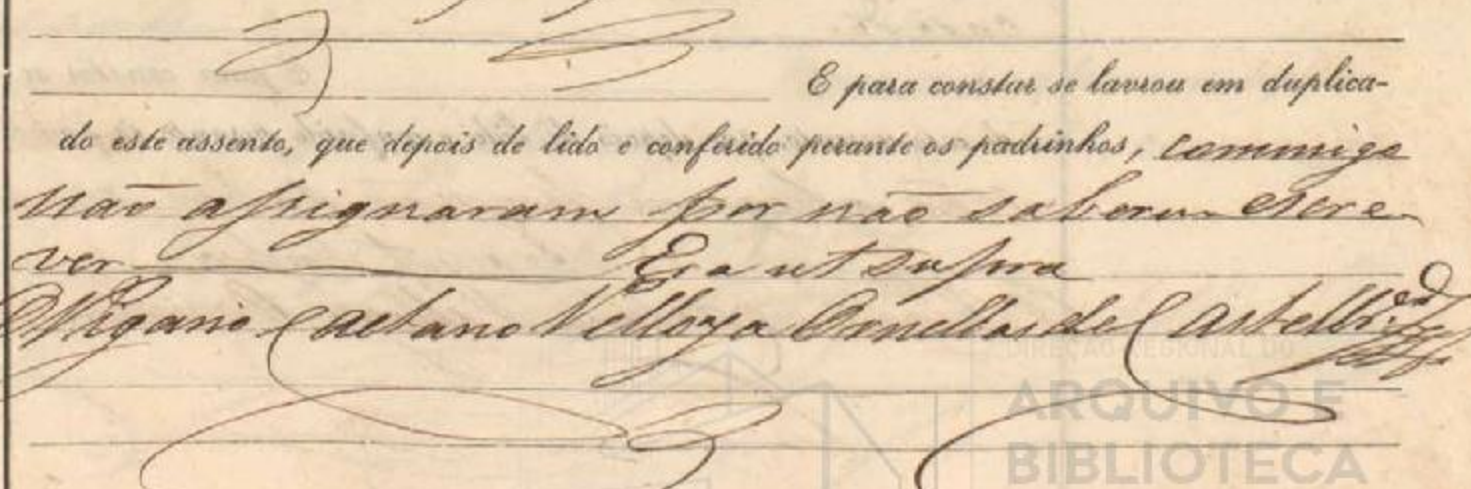 E para constar se lavrou em duplica-
do este assento, que depois de lido e conferido perante os padrinhos, commigo
não assignaram por não saberem escre-
ver Era ut supra
O Vigario Caetano Velloza Ornellas de Castellbr.co
DIREÇÃO REGIONAL DO
ARQUIVO E
BIBLIOTECA